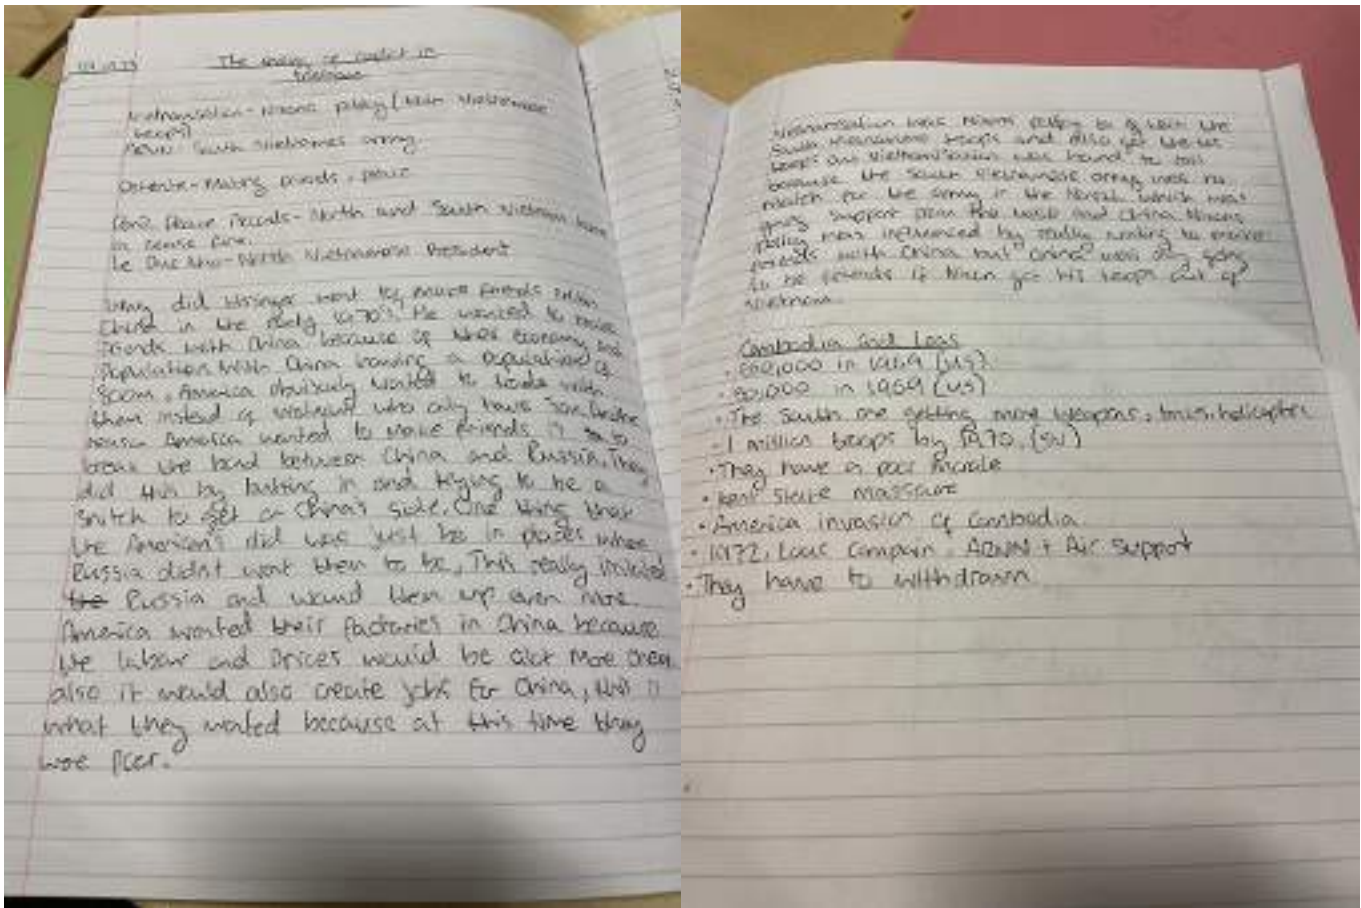 The ending of conflict in
Vietnam
Vietnamisation - Nixons policy (train Vietnamese
troops)
ARVN - South Vietnames army.
Detente - Making friends, peace
Peace Accords - North and South Vietnam
in cease fire.
Le Duc tho - North Vietnamese President
Why did want to make friends with
China in the early 1970's. He wanted to make
friends with China because of their economy and
population. With China having a population of
800m, America obviously wanted to trade with
them instead of who only have
reason America wanted to make friends is to
break the bond between China and Russia. They
did this by butting in and trying to be a
snitch to get on China's side. One thing that
the American's did was just be in places where
Russia didnt want them to be, This really
Russia and wound them up even more.
America wanted their factories in China because
the labour and prices would be alot more cheap
also it would also create jobs for China, this is
what they wanted because at this time they
were poor.
Vietnamisation was Nixons policy to the
South Vietnamese troops and also get the US
troops out Vietnamisation was bound to fail
because the South Vietnamese army was no
match for the army in the North which was
support from the USSR and China Nixons
policy was influenced by really wanting to make
friends with China but China was only going
to be friends if Nixon got his troops out of
Vietnam.
Cambodia and Laos
in 1969 (US)
in 1969 (US)
• The South are getting more weapons, helicopter
- 1 million troops by 1970.
• They have a poor Morale
• Kent State massacre
• America invasion of Cambodia
• 1972, Laos Campain, ARVN + Air support
• They have to withdrawn